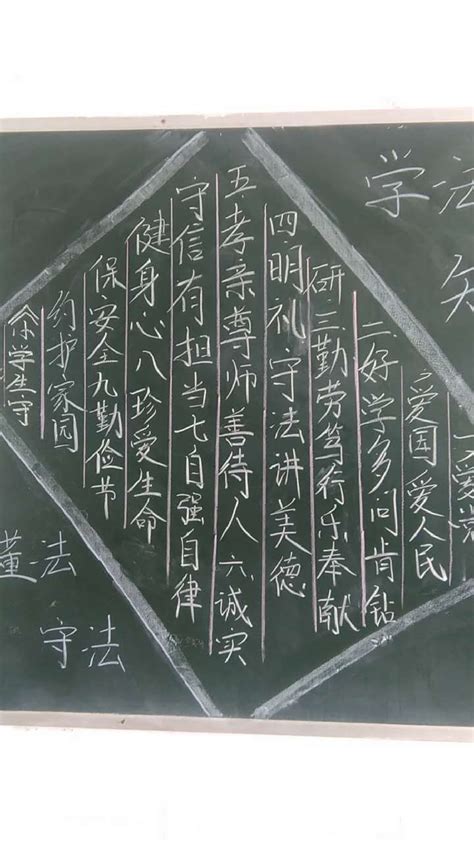 学法
知
一爱党
爱国爱人民
二、好学多问肯钻
研、三、勤劳笃行乐奉献
四、明礼守法讲美德
五、孝亲尊师善待人六、诚实
守信有担当七自强自律
健身心八珍爱生命
保安全九勤俭节
约护家园
学生守
董法
守法